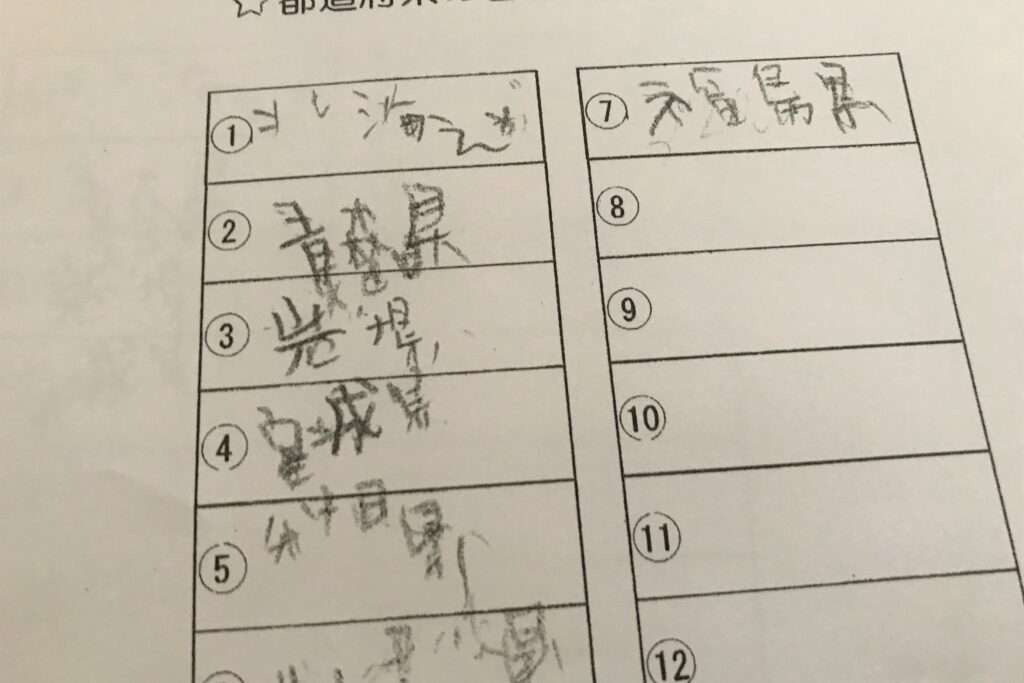 ☆都道府県
① 北海道
② 青森県
③ 岩手県
④ 宮城県
⑤ 秋田県
県
⑦ 福島県
⑧
⑨
⑩
⑪
⑫